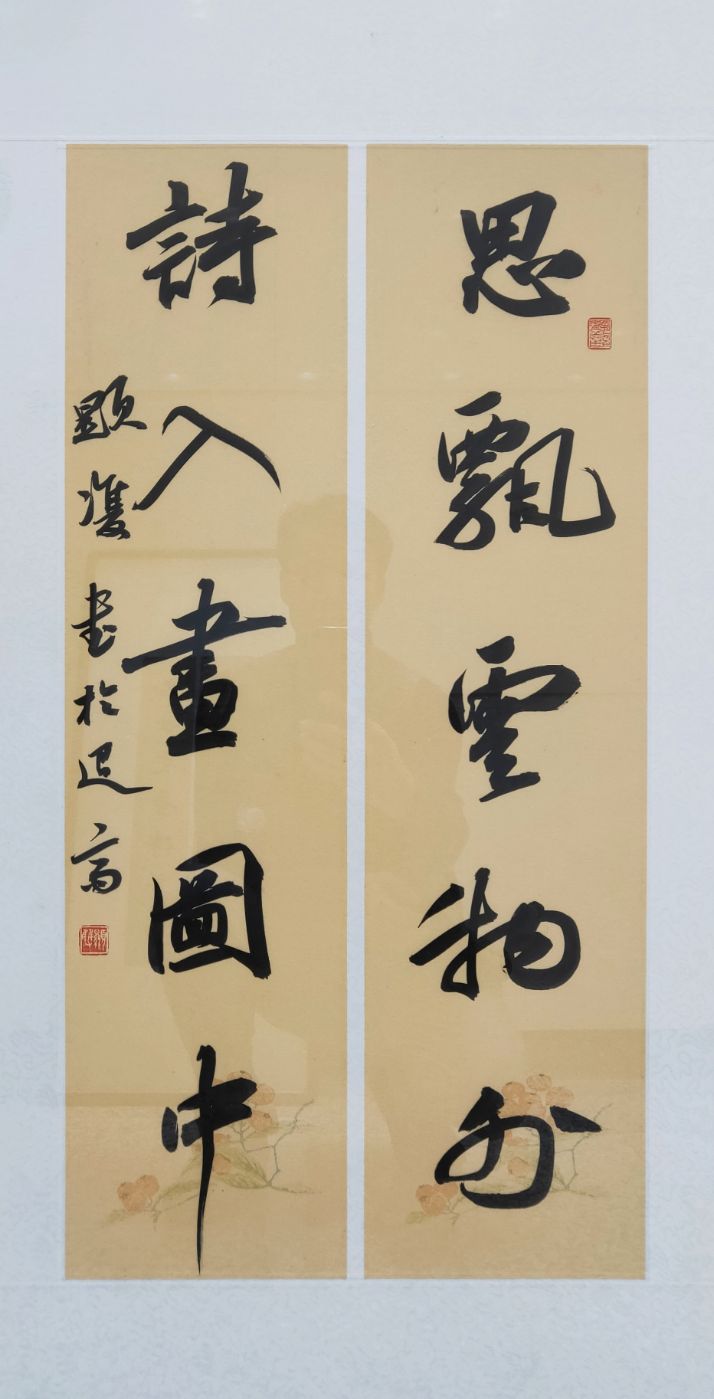 思飄雲物外
詩入畫圖中
顯濩書於退齋